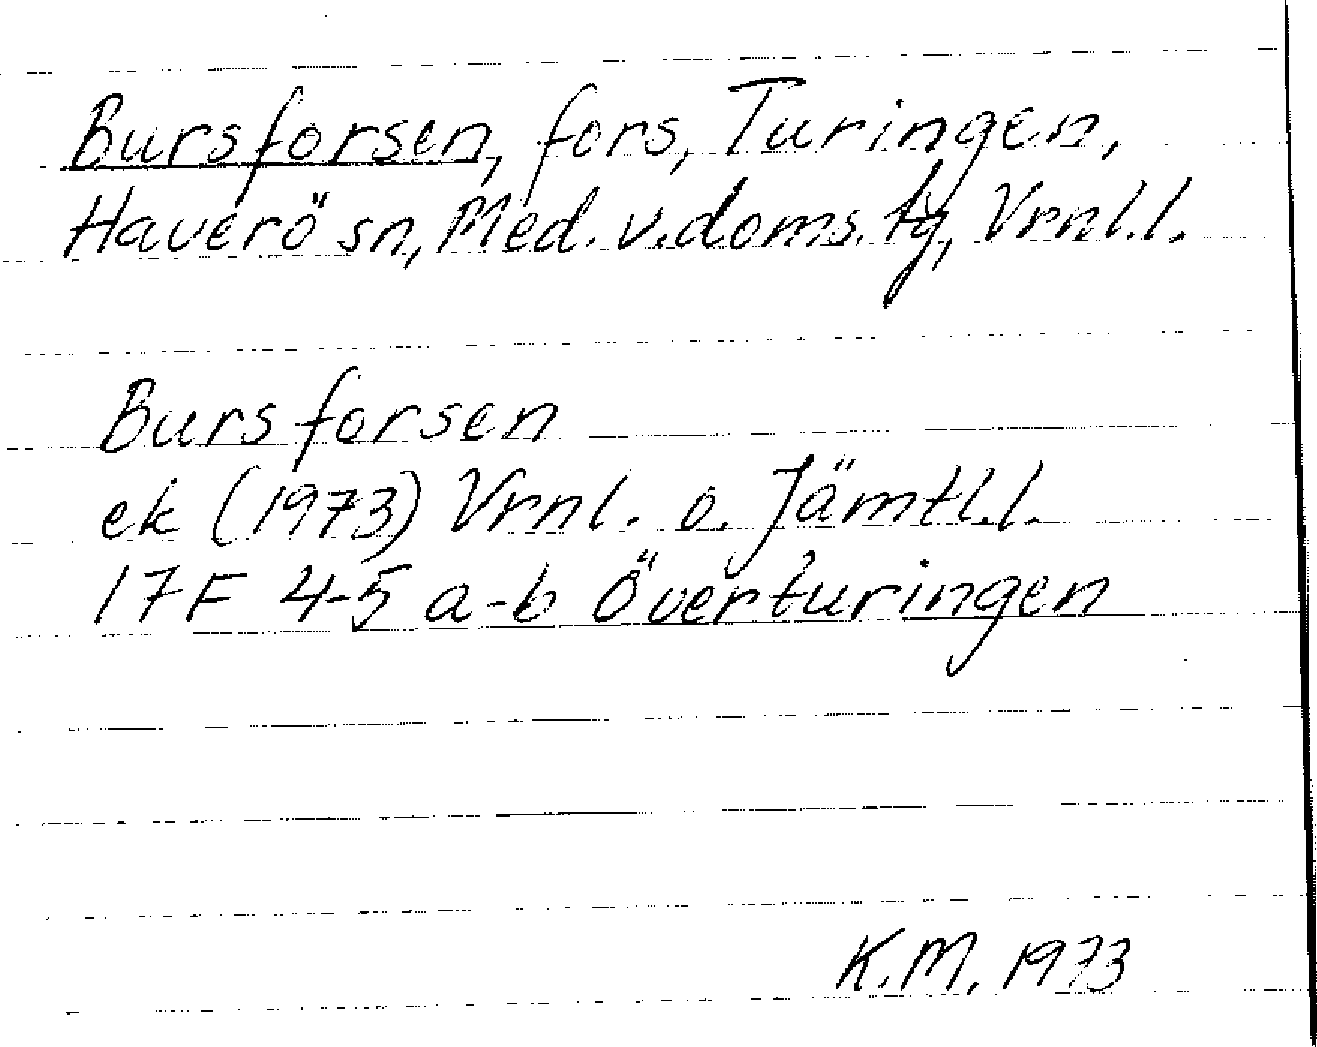 Bursforsen, fors, Turingen,
Haverö sn, Med. v. doms. tg, Vrnl. l.
Bursforsen
ek (1973) Vrnl. o. Jämtl. l.
17F 4-5 a-b Överturingen
K.M. 1973